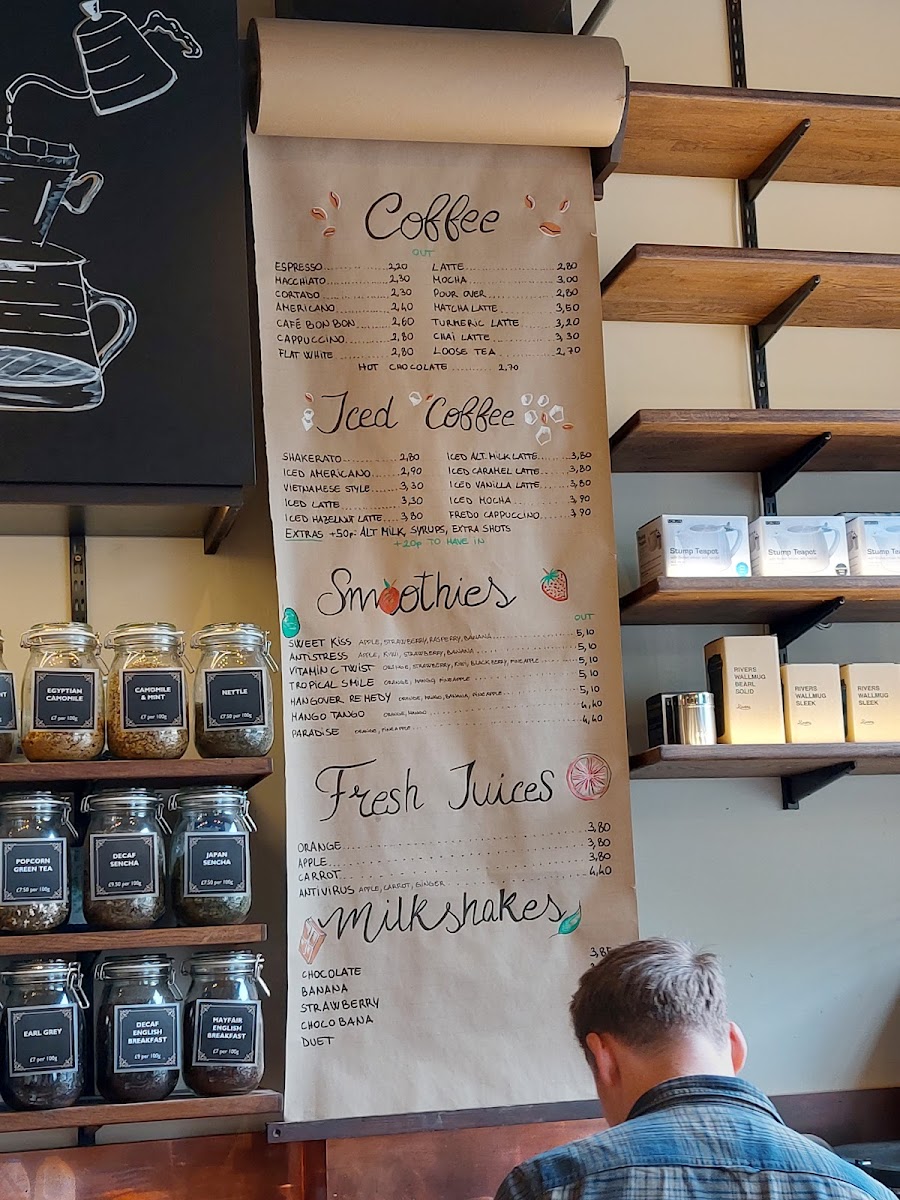 Coffee
OUT
ESPRESSO 2,20
MACCHIATO 2,30
CORTADO 2,30
AMERICANO 2,40
CAFÉ BON BON 2,60
CAPPUCCINO 2,80
FLAT WHITE 2,80
LATTE 2,80
MOCHA 3,00
POUR OVER 2,80
MATCHA LATTE 3,50
TURMERIC LATTE 3,20
CHAÏ LATTE 3,30
LOOSE TEA 2,70
HOT CHOCOLATE 2,70
Iced Coffee
SHAKERATO 2,80
ICED AMERICANO 2,90
VIETNAMESE STYLE 3,30
ICED LATTE 3,30
ICED HAZELNUT LATTE 3,80
ICED ALT. MILK LATTE 3,80
ICED CARAMEL LATTE 3,80
ICED VANILLA LATTE 3,80
ICED MOCHA 3,90
FREDO CAPPUCCINO 3,90
EXTRAS +50p: ALT MILK, SYRUPS, EXTRA SHOTS
+20p TO HAVE IN
Smoothies
OUT
SWEET KISS APPLE, STRAWBERRY, RASPERRY, BANANA 5,10
ANTISTRESS APPLE, KIWI, STRAWBERRY, BANANA 5,10
VITAMIN C TWIST ORANGE, STRAWBERRY, KIWI, BLACKBERRY, PINEAPPLE 5,10
TROPICAL SMILE ORANGE, MANGO, PINEAPPLE 5,10
HANGOVER REMEDY ORANGE, MANGO, BANANA, PINEAPPLE 5,10
MANGO TANGO ORANGE, MANGO 4,40
PARADISE ORANGE, PINEAPPLE 4,40
Fresh Juices
ORANGE 3,80
APPLE 3,80
CARROT 3,80
ANTIVIRUS APPLE, CARROT, GINGER 4,40
Milkshakes
CHOCOLATE 3,85
BANANA
STRAWBERRY
CHOCO BANA
DUET
EGYPTIAN CAMOMILE
£7 per 100g
CAMOMILE & MINT
£7 per 100g
NETTLE
£7.50 per 100g
POPCORN GREEN TEA
£7.50 per 100g
DECAF SENCHA
£9.50 per 100g
JAPAN SENCHA
£7.50 per 100g
EARL GREY
£7 per 100g
DECAF ENGLISH BREAKFAST
£9 per 100g
MAYFAIR ENGLISH BREAKFAST
£7 per 100g
Stump Teapot
Stump Teapot
Stump Teapot
RIVERS
WALLMUG
BEARL
SOLID
RIVERS
WALLMUG
SLEEK
RIVERS
WALLMUG
SLEEK